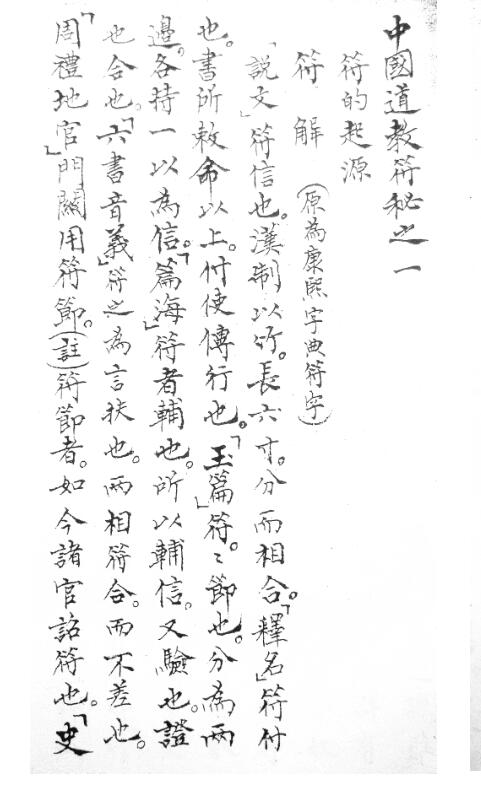 中國道教符秘之一
符的起源
符解（原為康熙字典符字）
「說文」符信也。漢制以竹。長六寸。分而相合。「釋名」符付
也。書所敕命以上。付使傳行也。「玉篇」符。〻節也。分為兩
邊。各持一以為信。「篇海」符者輔也。所以輔信。又驗也。證
也合也。「六書音義」符之為言扶也。兩相符合。而不差也。
「周禮地官」門關用符節。（註）符節者。如今諸官詔符也。「史